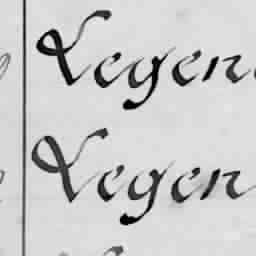 Legen
Legen